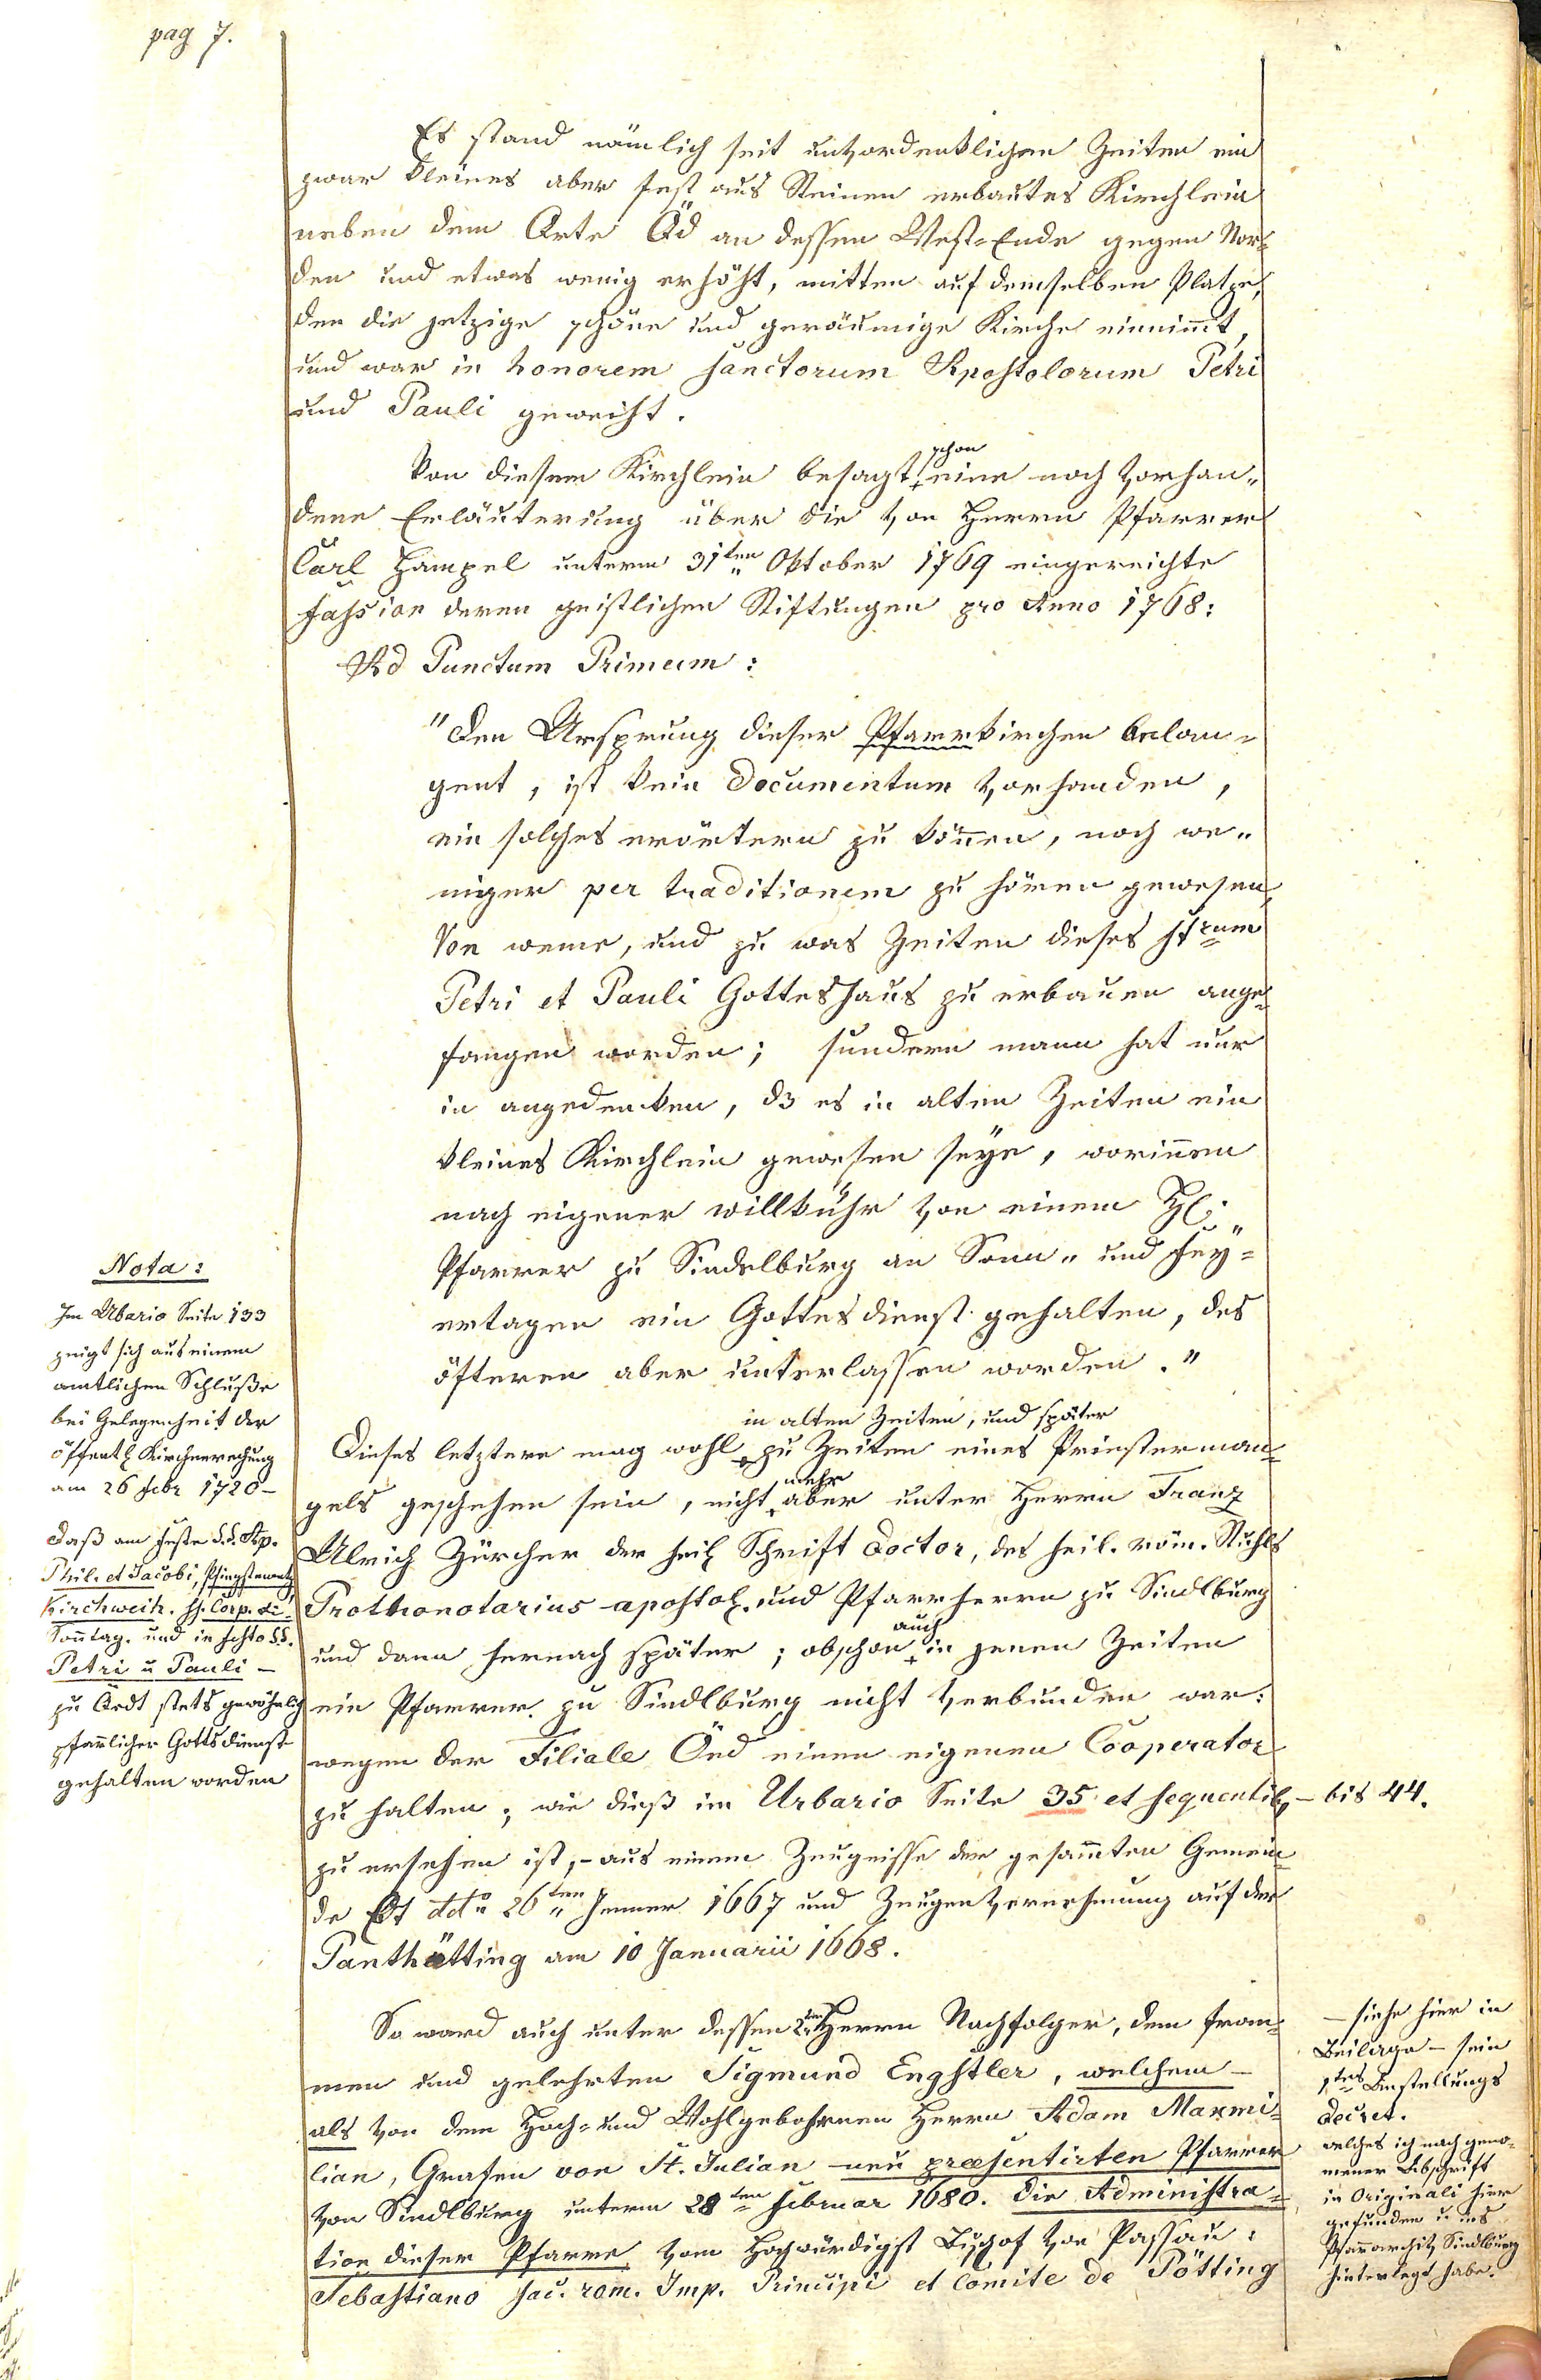 pag 7.
Es stand nämlich seit unvordenklichen Zeiten ein
zwar kleines aber fest aus Steinen erbautes Kirchlein
neben dem Orte Öd an dessen West-Ende gegen Nor-
den und etwas wenig erhöht, mitten auf demselben Platze,
den die jetzige schöne und geräumige Kirche einnimt,
und war in honorem sanctorum Apostolorum Petri
und Pauli geweiht.
schon
Von diesem Kirchlein besagt eine noch vorhan-
dene Erläuterung über die von Herrn Pfarrer
Carl Hampel unterm 31ten Oktober 1769 eingereichte
Fassion deren geistlichen Stiftungen pro Anno 1768:
Ad Punctum Primum:
"Den Ursprung dieser Pfarrkirchen belan-
gent, ist kein Documentum vorhanden,
ein solches erörtern zu können, noch we-
niger per traditionem zu hören gewesen,
Von weme, und zu was Zeiten dieses Strum
Petri et Pauli Gotteshaus zu erbauen ange-
fangen worden; sundern mann hat nur
in angedencken, dz es in alten Zeiten ein
kleines Kirchlein gewesen seye, worinnen
nach eigener willkühr von einem H:
Pfarrer zu Sindelburg an Sonn- und Fey-
ertagen ein Gottesdienst gehalten, des
öfteren aber unterlassen worden."
in alten Zeiten, und später
Dieses letztere mag wohl zu Zeiten eines Priesterman-
mehr
gels geschehen sein, nicht aber unter Herrn Franz
Ulrich Zürcher der heil Schrift Doctor, des heil. röm. Stuhls
Prothonotarius apostol. und Pfarrherrn zu Sindlburg
auch
und dann hernach später; obschon in jenen Zeiten
ein Pfarrer zu Sindlburg nicht verbunden war:
wegen der Filiale Öed einen eigenen Cooperator
zu halten; wie dieß im Urbario Seite 35 et sequentib - bis 44.
zu ersehen ist, - aus einem Zeugnisse der gesammten Gemein-
de Edt dcto 26ten Jenner 1667 und Zeugen Vernehmung auf der
Panthätting am 10 Januarii 1668.
So ward auch unter dessen Herrn Nachfolger, dem from-
men und gelehrten Sigmund Engstler, welchem -
als von dem Hoch- und Wohlgebohrnen Herrn Adam Maxmi-
lian, Grafen von St. Julian neu praesentirten Pfarrer
von Sindlburg unterm 28ten Februar 1680. die Administra-
tion dieser Pfarre vom Hochwürdigst Bischof von Passau:
Sebastiano Sac. rom. Imp. Principi et Comite de Pötting
Nota:
Im Urbario Seite 133
zeigt sich aus einem
amtlichen Schluße
bei Gelegenheit der
öffentl Kirchenrechnung
am 26 Febr 1720 -
daß am Feste S.S. Ap.
Phil. et Jacobi,
Kirchweih. SS. Corp.
Sonntag. und in festo S.S.
Petri u Pauli -
zu Oedt stets gewöhnlich
pfarrlicher Gottsdienst
gehalten worden
- siehe hier in
Beilage - sein
1tes Anstellungs
Decret.
welches ich nach geno-
mener Abschrift
in Originali hier
gefunden u ins
Pfarrarchiv Sindlburg
hinterlegt habe.